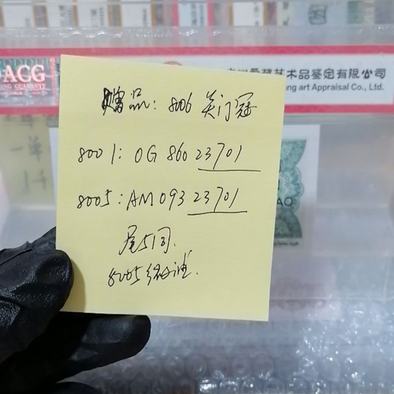 ACG
NG GUARANTY
艺术品鉴定有限公司
ng art Appraisal Co., Ltd.
赠品: 8006 关门冠
8001: OG 860 23701
8005: AM 093 23701
尾5同.
8005绿油.
一单
AO